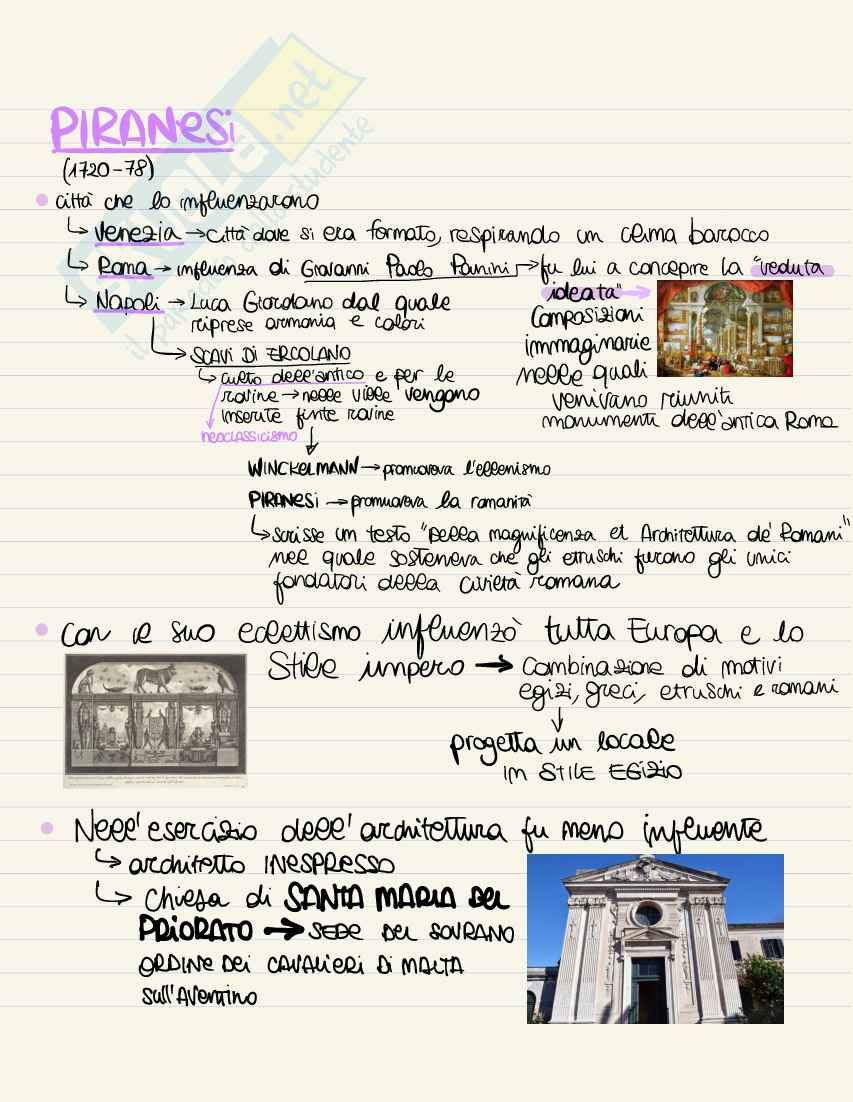 PIRANESi
(1720-78)
città che lo influenzarono
Venezia → città dove si era formato, respirando un clima barocco
Roma → influenza di Giovanni Paolo Pannini → fu lui a concepire la "veduta
ideata" →
Composizioni
immaginarie
nelle quali
venivano riuniti
monumenti dell'antica Roma
Napoli → Luca Giordano dal quale
riprese armonia e colori
SCAVI DI ERCOLANO
culto dell'antico e per le
rovine → nelle ville vengono
inserite finte rovine
neoclassicismo
WINCKELMANN → promuoveva l'ellenismo
PIRANESi → promuoveva la romanità
scrisse un testo "Della magnificenza et Architettura de' Romani"
nel quale sosteneva che gli etruschi furono gli unici
fondatori della civiltà romana
Con il suo eclettismo influenzò tutta Europa e lo
Stile impero → combinazione di motivi
egizi, greci, etruschi e romani
progetta un locale
in STILE EGIZIO
Nell'esercizio dell'architettura fu meno influente
architetto INESPRESSO
Chiesa di SANTA MARIA DEL
PRIORATO → SEDE DEL SOVRANO
ORDINE DEI CAVALIERI DI MALTA
sull'Aventino
.net